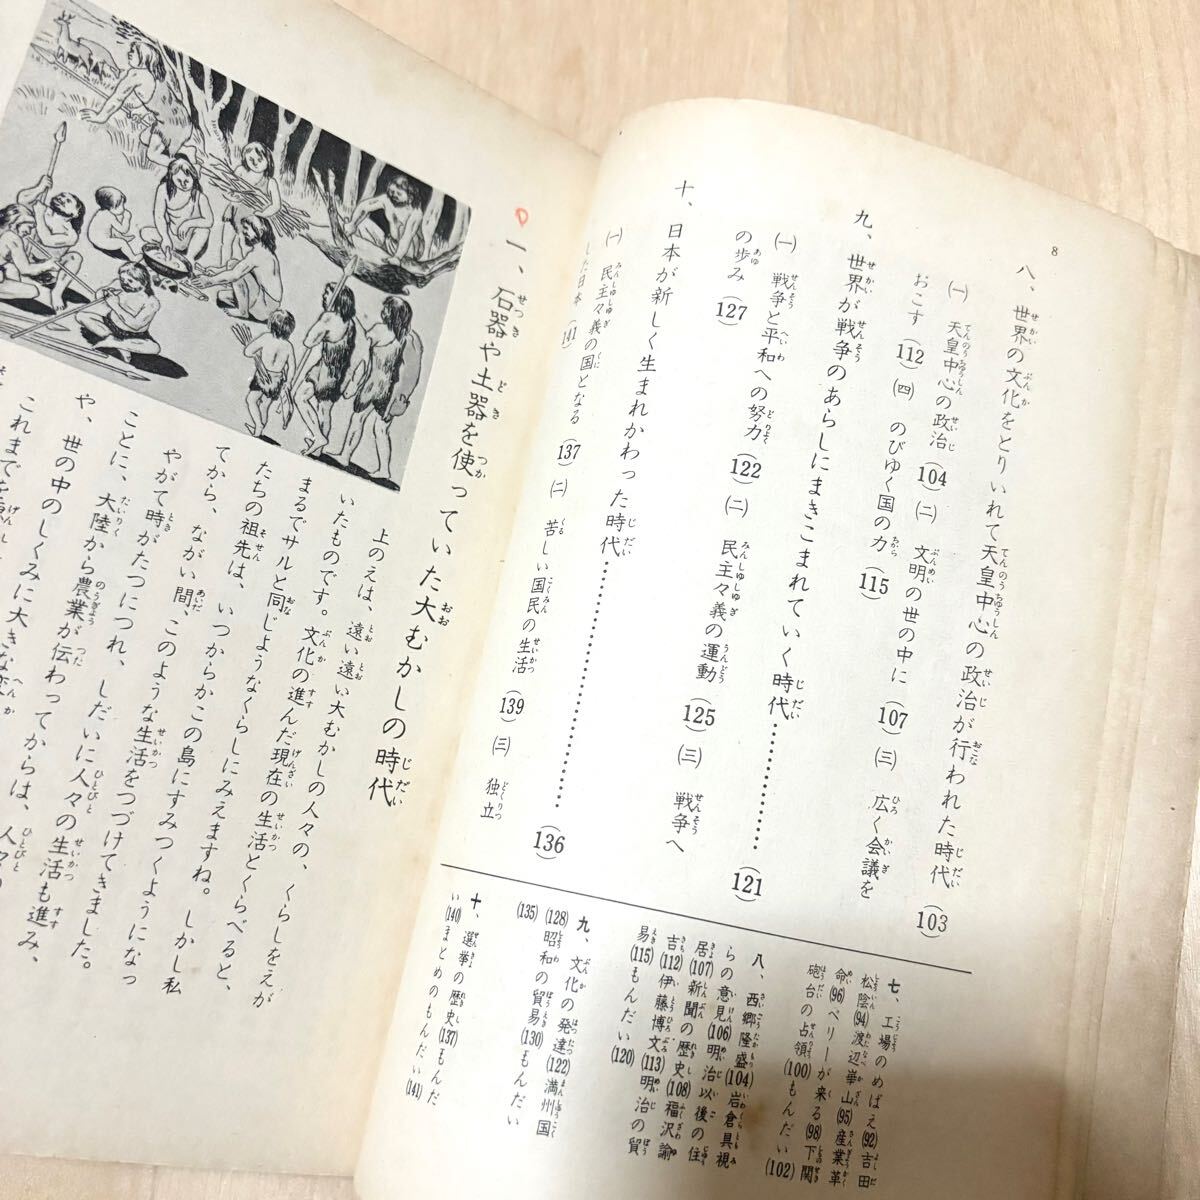 8
八、世界の文化をとりいれて天皇中心の政治が行われた時代 (103)
㈠ 天皇中心の政治 (104) ㈡ 文明の世の中に (107) ㈢ 広く会議を
おこす (112) ㈣ のびゆく国の力 (115)
九、世界が戦争のあらしにまきこまれていく時代………… (121)
㈠ 戦争と平和への努力 (122) ㈡ 民主々義の運動 (125) ㈢ 戦争へ
の歩み (127)
十、日本が新しく生まれかわった時代………………… (136)
㈠ 民主々義の国となる (137) ㈡ 苦しい国民の生活 (139) ㈢ 独立
した日本 (141)
七、工場のめばえ(92)吉田
松陰(94)渡辺崋山(95)産業革
命(96)ペリーが来る(98)下関
砲台の占領(100)もんだい(102)
八、西郷隆盛(104)岩倉具視
らの意見(106)明治以後の住
居(107)新聞の歴史(108)福沢諭
吉(112)伊藤博文(113)明治の貿
易(115)もんだい(120)
九、文化の発達(122)満州国
(128)昭和の貿易(130)もんだい
(135)
十、選挙の歴史(137)もんだ
い(140)まとめのもんだい(141)
一、石器や土器を使っていた大むかしの時代
上のえは、遠い遠い大むかしの人々の、くらしをえが
いたものです。文化の進んだ現在の生活とくらべると、
まるでサルと同じようなくらしにみえますね。しかし私
たちの祖先は、いつからかこの島にすみつくようになっ
てから、ながい間、このような生活をつづけてきました。
やがて時がたつにつれ、しだいに人々の生活も進み、
ことに、大陸から農業が伝わってからは、人々の
や、世の中のしくみに大きな変か
これまでを原